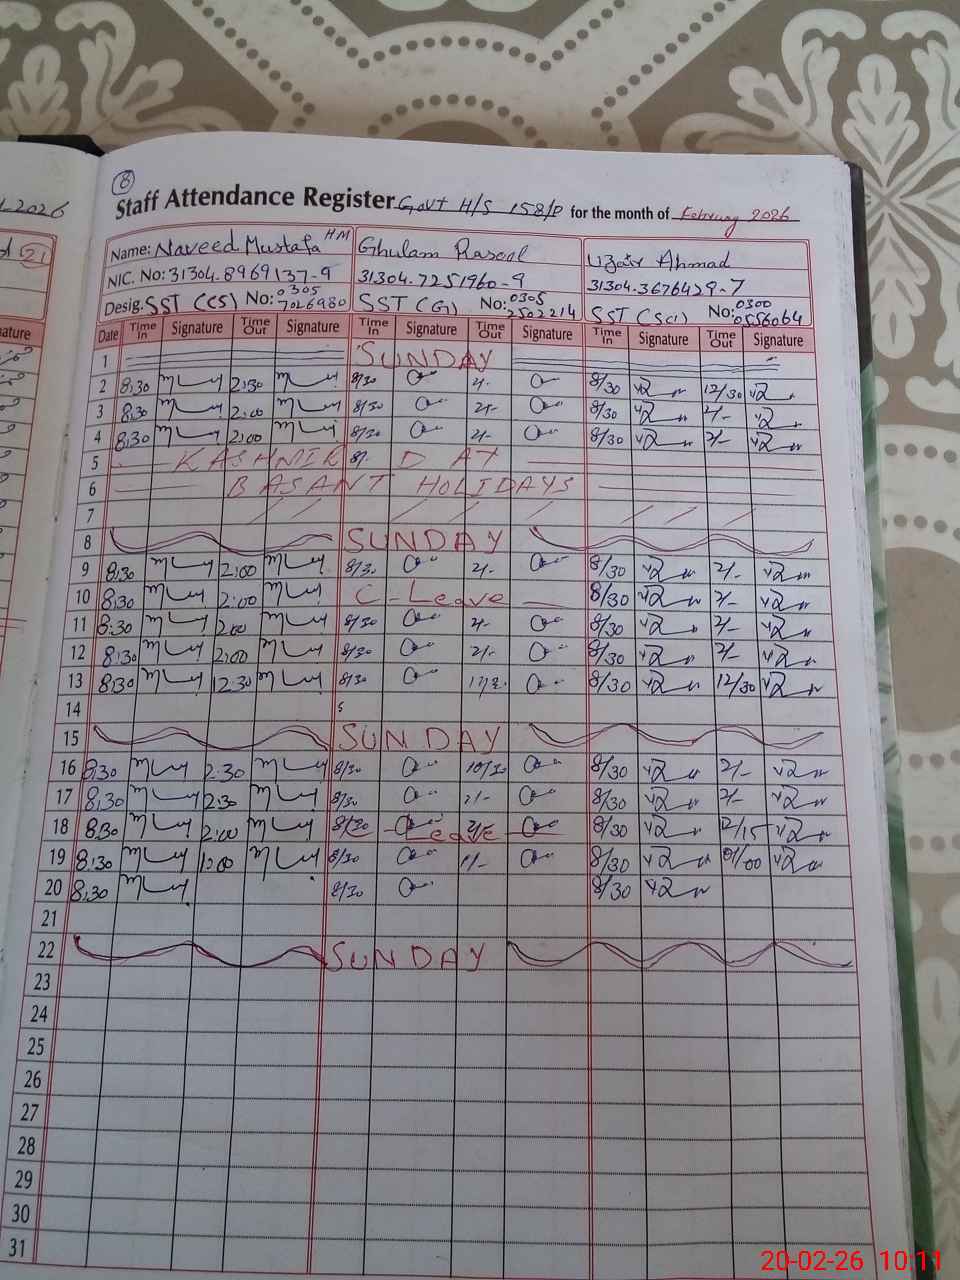 8
Staff Attendance Register Govt H/S 158/P for the month of February 2026
2026
21
Name: Naveed Mustafa HM Ghulam Rasool Uzair Ahmad
NIC. No: 31304.8969137-9 31304.7251960-9 31304.3676429-7
Desig. SST (CS) No: 0305 7026980 SST (G) No: 0305 2502214 SST (Sci) No: 0300 0556064
Date Time In Signature Time Out Signature Time In Signature Time Out Signature Time In Signature Time Out Signature
ature
1 SUNDAY
2 8:30 2:30 8/30 2/- 8/30 12/30
3 8:30 2:00 8/30 2/- 8/30 2/-
4 8:30 2:00 8/30 2/- 8/30 2/-
5 KASHMIR 8/- DAY
6 BASANT HOLIDAYS
7 / / / / / / / /
8 SUNDAY
9 8:30 2:00 8/30 2/- 8/30 2/-
10 8:30 2:00 C-Leave 8/30 2/-
11 8:30 2:00 8/30 2/- 8/30 2/-
12 8:30 2:00 8/30 2/- 8/30 2/-
13 8:30 12:30 8/30 8/30 12/30
14
15 SUNDAY
16 8:30 2:30 8/30 10/30 8/30 2/-
17 8:30 2:30 8/30 2/- 8/30 2/-
18 8:30 2:00 8/30 C-Leave 8/30 12/15
19 8:30 1:00 8/30 1/- 8/30 01/00
20 8:30 8/30 8/30
21
22 SUNDAY
23
24
25
26
27
28
29
30
31
20-02-26 10:11